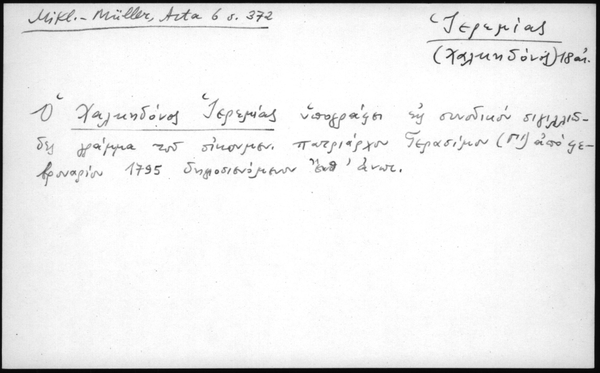 Mikl.-Müller, Acta 6 σ. 372
Ἱερεμίας
(Χαλκηδόνος) 18 αἰ.
Ὁ Χαλκηδόνος Ἱερεμίας ὑπογράφει εἰς συνοδικόν σιγιλλιῶ-
δες γράμμα τοῦ οἰκουμεν. πατριάρχου Γερασίμου (Γ') ἀπό φε-
βρουαρίου 1795 δημοσιευόμενον ἔνθ' ἀνωτ.